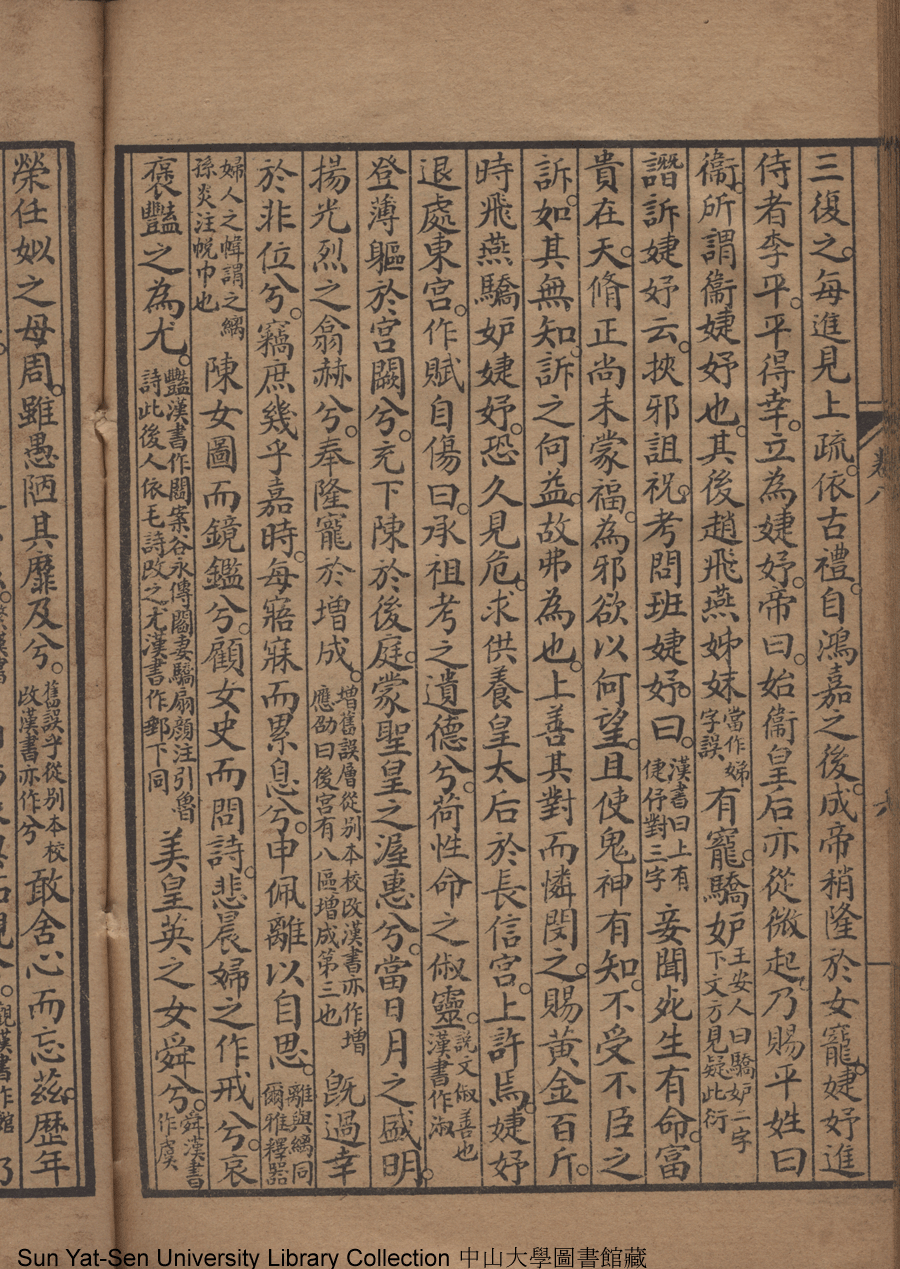 三復之。每進見上疏。依古禮。自鴻嘉之後。成帝稍隆於女寵。婕妤進
侍者李平。平得幸。立為婕妤。帝曰。始衞皇后亦從微起。乃賜平姓曰
衞。所謂衞婕妤也。其後趙飛燕姊妹當作娣字誤有寵。驕妒王安人曰驕妒二字下文方見疑此衍
譖訴婕妤云。挾邪詛祝。考問班婕妤。曰。漢書曰上有倢伃對三字妾聞死生有命。富
貴在天。脩正尚未蒙福。為邪欲以何望。且使鬼神有知。不受不臣之
訴。如其無知。訴之何益。故弗為也。上善其對而憐閔之。賜黃金百斤。
時飛燕驕妒。婕妤恐久見危。求供養皇太后於長信宮。上許焉。婕妤
退處東宮。作賦自傷曰。承祖考之遺德兮。荷性命之俶靈。說文俶善也漢書作淑
登薄軀於宮闕兮。充下陳於後庭。蒙聖皇之渥惠兮。當日月之盛明。
揚光烈之翕赫兮。奉隆寵於增成。增舊誤層從别本校改漢書亦作增應劭曰後宮有八區增成第三也既過幸
於非位兮。竊庶幾乎嘉時。每寤寐而累息兮。申佩離以自思。離與縭同爾雅釋器
婦人之幃謂之縭孫炎注帨巾也陳女圖而鏡鑑兮。顧女史而問詩。悲晨婦之作戒兮。哀
褒豔之為尤。豔漢書作閻案谷永傳閻妻驕扇顏注引魯詩此後人依毛詩改之尤漢書作郵下同美皇英之女舜兮。舜漢書作虞
榮任姒之母周。雖愚陋其靡及兮。舊誤乎從别本校改漢書亦作兮敢舍心而忘茲。歷年
卷八